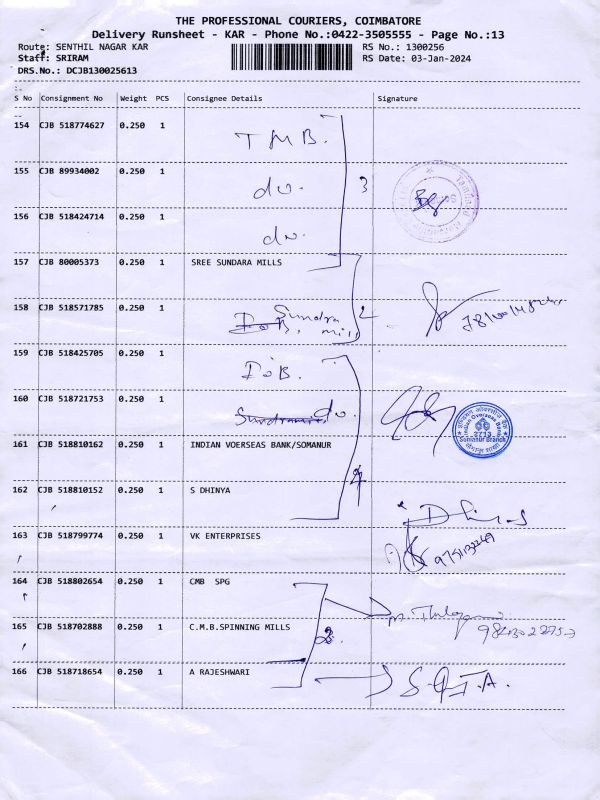 THE PROFESSIONAL COURIERS, COIMBATORE
Delivery Runsheet - KAR - Phone No.:0422-3505555 - Page No.:13
Route: SENTHIL NAGAR KAR RS No.: 1300256
Staff: SRIRAM RS Date: 03-Jan-2024
DRS.No.: DCJB130025613
S No Consignment No Weight PCS Consignee Details Signature
154 CJB 518774627 0.250 1 TMB.
155 CJB 89934002 0.250 1 do. 3
156 CJB 518424714 0.250 1 do.
157 CJB 80005373 0.250 1 SREE SUNDARA MILLS
158 CJB 518571785 0.250 1 Sundra mill 2
159 CJB 518425705 0.250 1 IOB.
160 CJB 518721753 0.250 1 do.
Indian Overseas Bank
2713
Somanur Branch
161 CJB 518810162 0.250 1 INDIAN VOERSEAS BANK/SOMANUR
162 CJB 518810152 0.250 1 S DHINYA 4
163 CJB 518799774 0.250 1 VK ENTERPRISES
164 CJB 518802654 0.250 1 CMB SPG
165 CJB 518702888 0.250 1 C.M.B.SPINNING MILLS
166 CJB 518718654 0.250 1 A RAJESHWARI